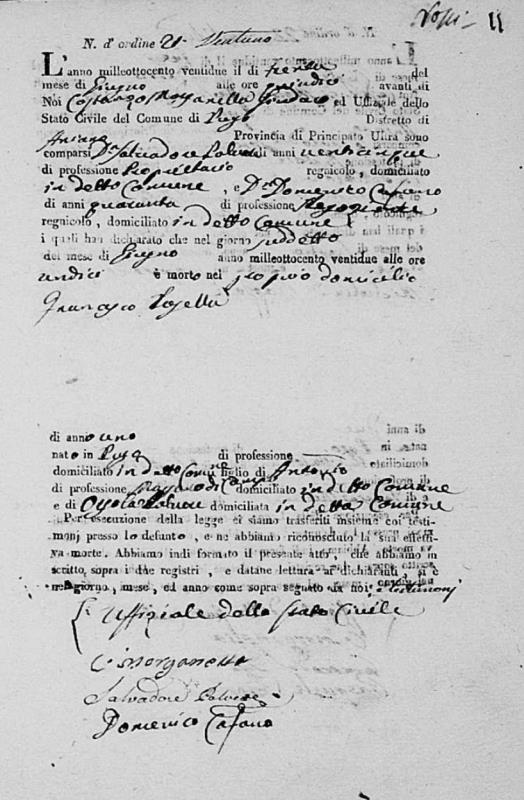 11
N. d'ordine 21 Ventuno
L'anno milleottocento ventidue il dì trenta del
mese di Giugno alle ore quindici avanti di
Noi Costanzo Morganella Sindaco ed Uffiziale dello
Stato Civile del Comune di Distretto di
Ariano Provincia di Principato Ultra sono
comparsi Dn Salvadore Polvere di anni venticinque
di professione Proprietario regnicolo, domiciliato
in detto Comune, e Dn Domenico Cafano
di anni quaranta di professione Negoziante
regnicolo, domiciliato in detto Comune
i quali han dichiarato che nel giorno suddetto
del mese di Giugno anno milleottocento ventidue alle ore
undici è morto nel proprio domicilio
Francesco
di anno uno
nato in di professione
domiciliato in detto Comune figlio di Antonio
di professione domiciliato in detto Comune
e di Polvere domiciliata in detto Comune
Per esecuzione della legge ci siamo trasferiti insieme coi testi-
monj presso lo defunto, e ne abbiamo riconosciuto la sua effetti-
va morte. Abbiamo indi formato il presente atto, che abbiamo in-
scritto sopra i due registri, e datane lettura ai dichiaranti, si è
nel giorno, mese, ed anno come sopra segnato da noi, e testimonj
Uffiziale dello Stato Civile
Salvadore Polvere
Domenico Cafano